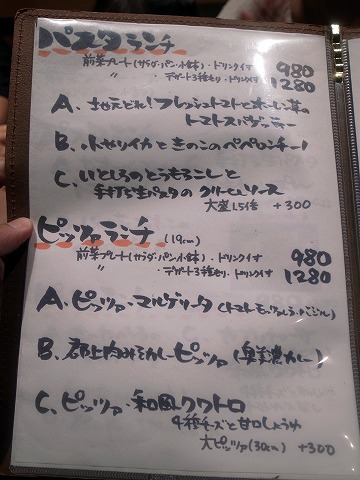 パスタランチ
前菜プレート(サラダ・パン・小鉢)・ドリンク付 980
〃 ・デザート3種もり・ドリンク付 1280
A. 地元どれ!フレッシュトマトと
トマトスパゲッティー
B. 小ヤリイカときのこのペペロンチーノ
C. いとしろのとうもろこしと
手打ち生パスタのクリームソース
大盛1.5倍 +300
ピッツァランチ (19cm)
前菜プレート(サラダ・パン・小鉢)・ドリンク付 980
〃 ・デザート3種もり・ドリンク付 1280
A. ピッツァ・マルゲリータ(トマト・モッツァレラ・バジル)
B. 郡上肉みそカレーピッツァ(奥美濃カレー)
C. ピッツァ・和風クワトロ
4種チーズと甘口しょうゆ
大ピッツァ(30cm) +300